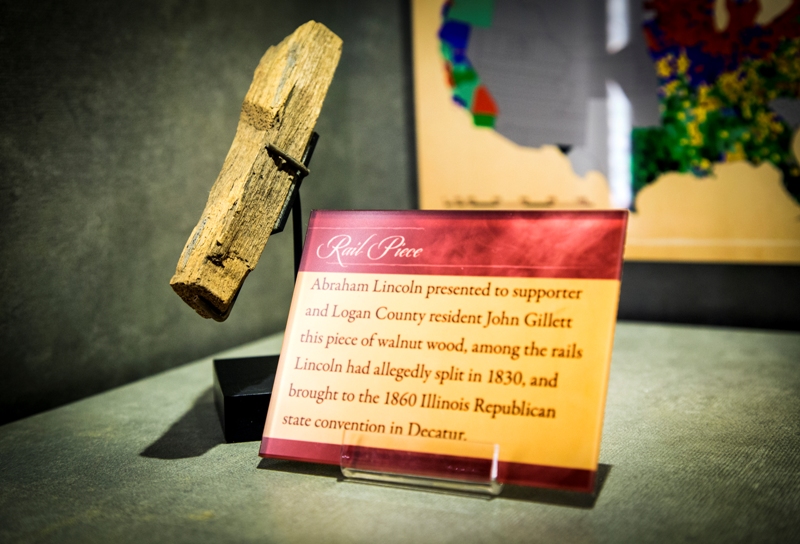 Rail Piece
Abraham Lincoln presented to supporter
and Logan County resident John Gillett
this piece of walnut wood, among the rails
Lincoln had allegedly split in 1830, and
brought to the 1860 Illinois Republican
state convention in Decatur.